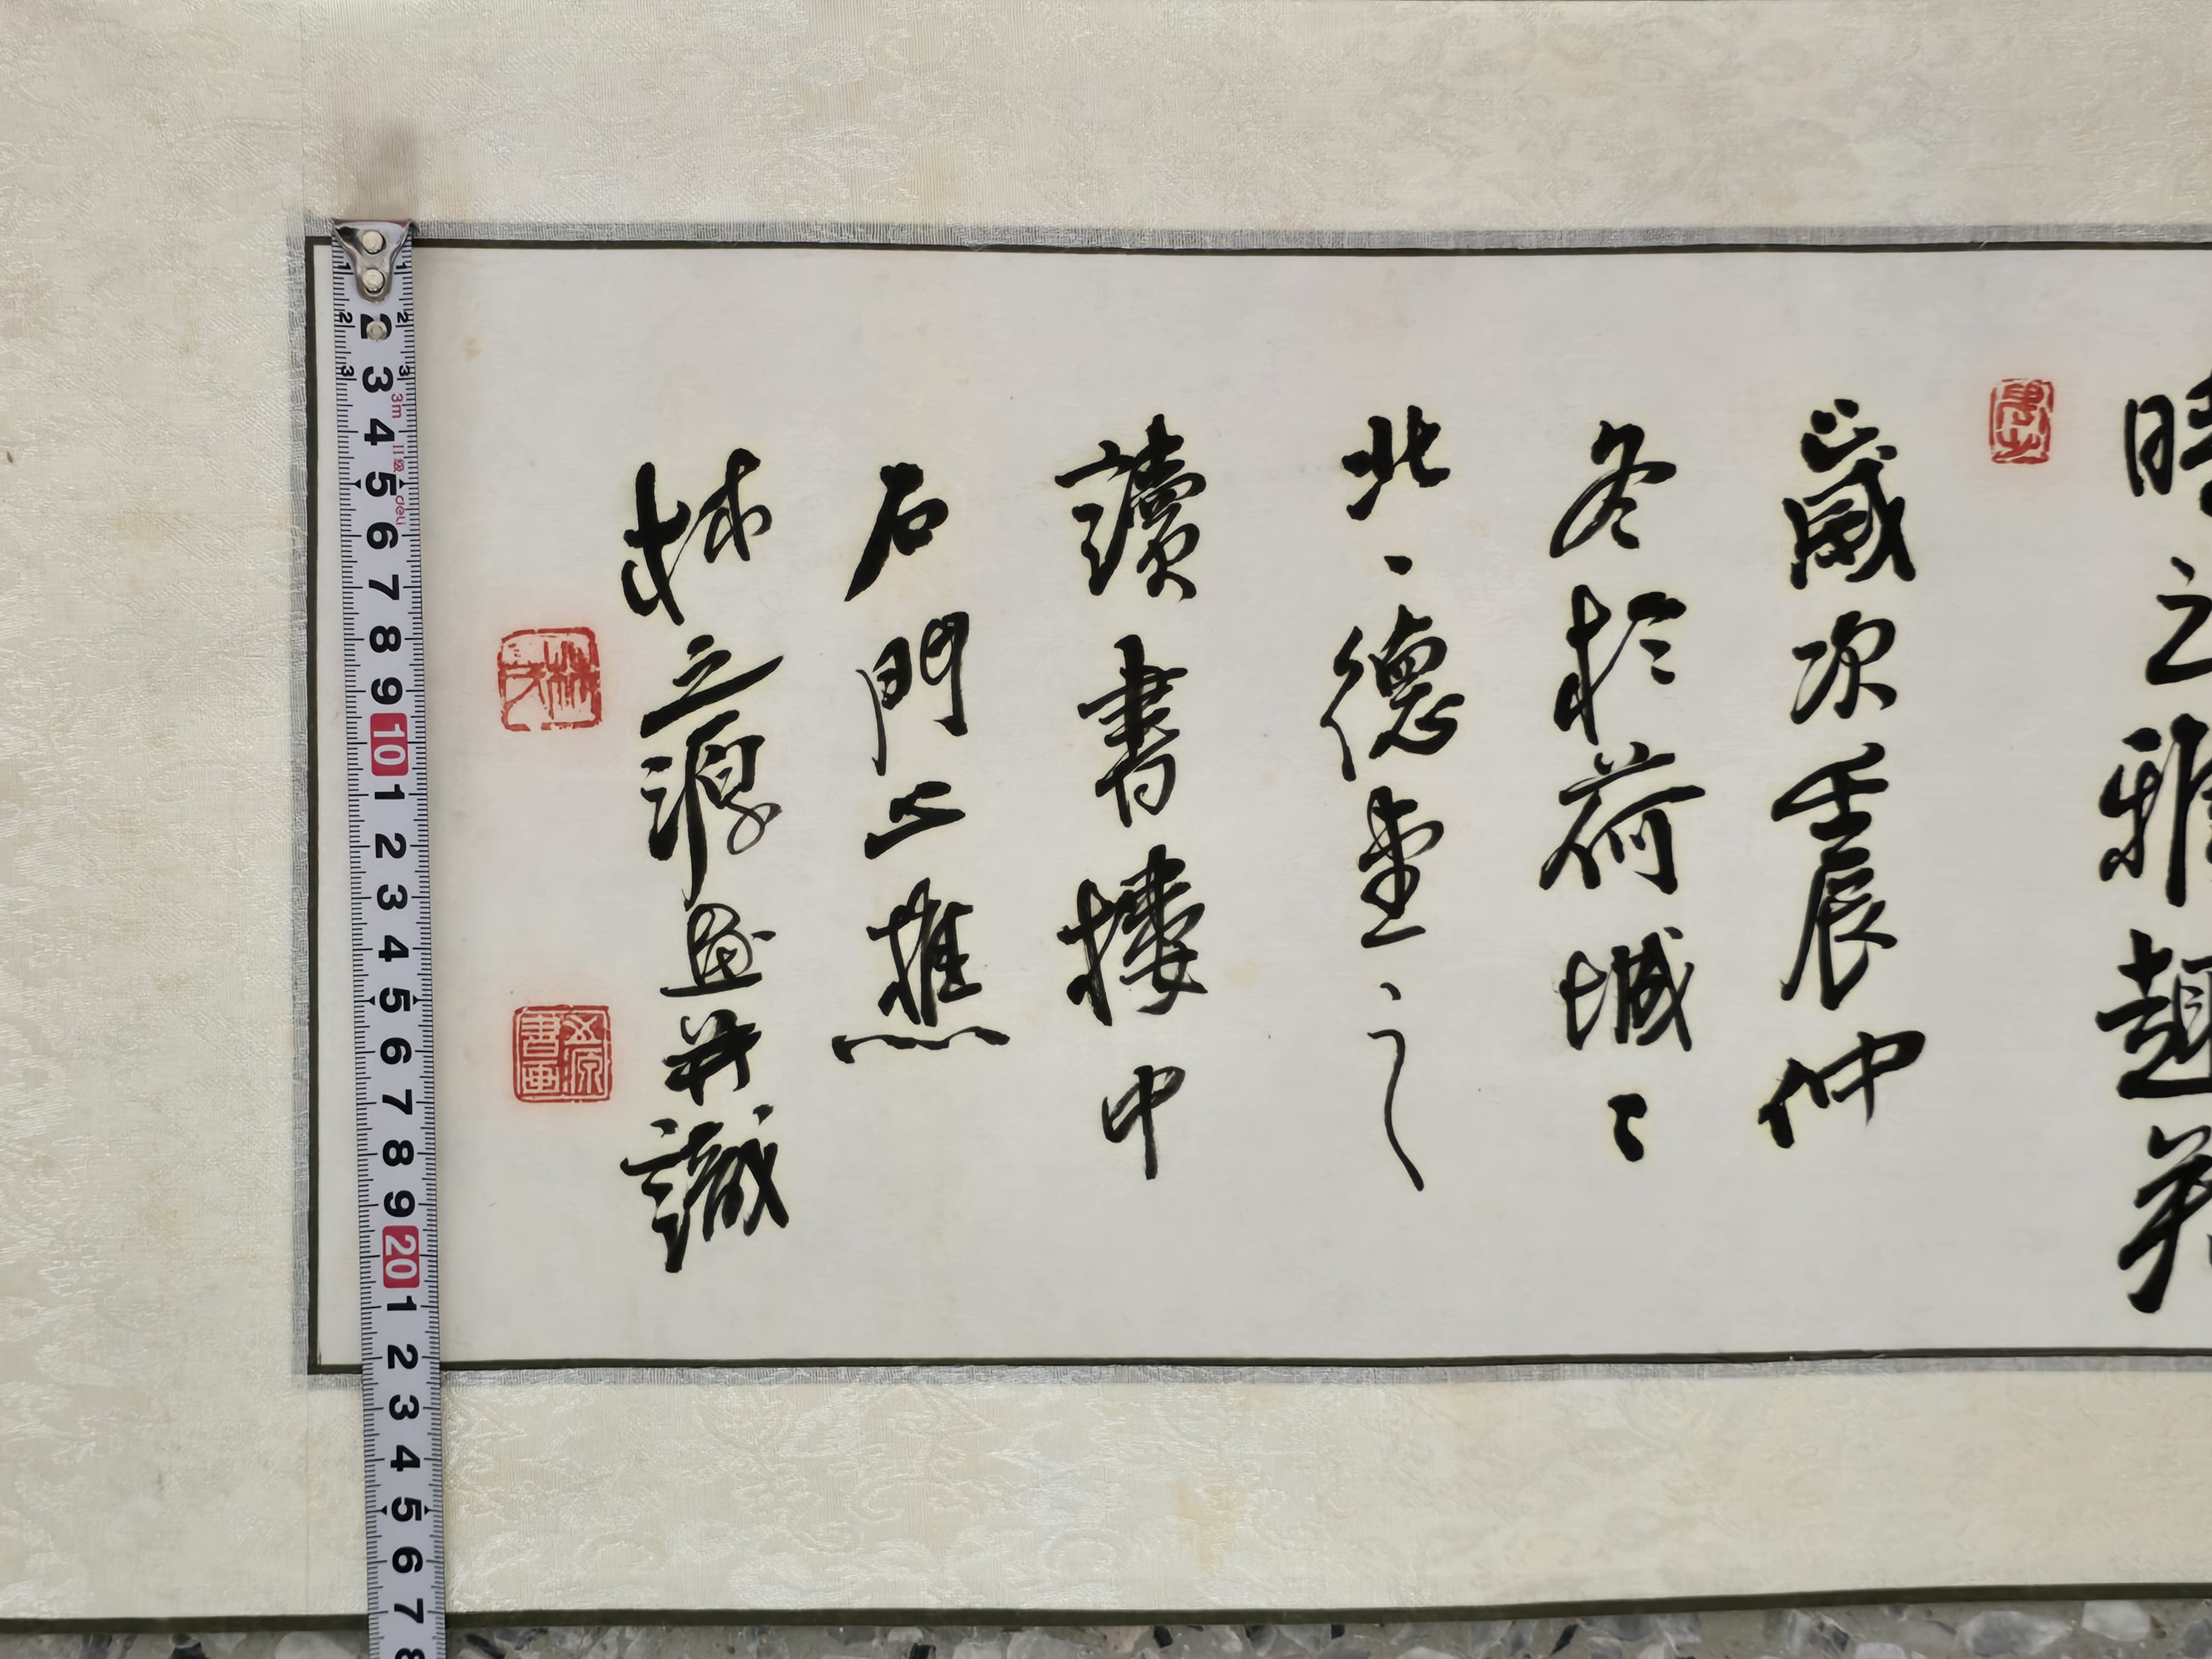 之雅趣
歲次壬辰仲
冬於荷城之
北德堂之
讀書樓中
石門山樵
林之源畫并識
林氏
之源書畫
2 3 4 5 6 7 8 9 10 1 2 3 4 5 6 7 8 9 20 1 2 3 4 5 6 7 8
3m II级 deli